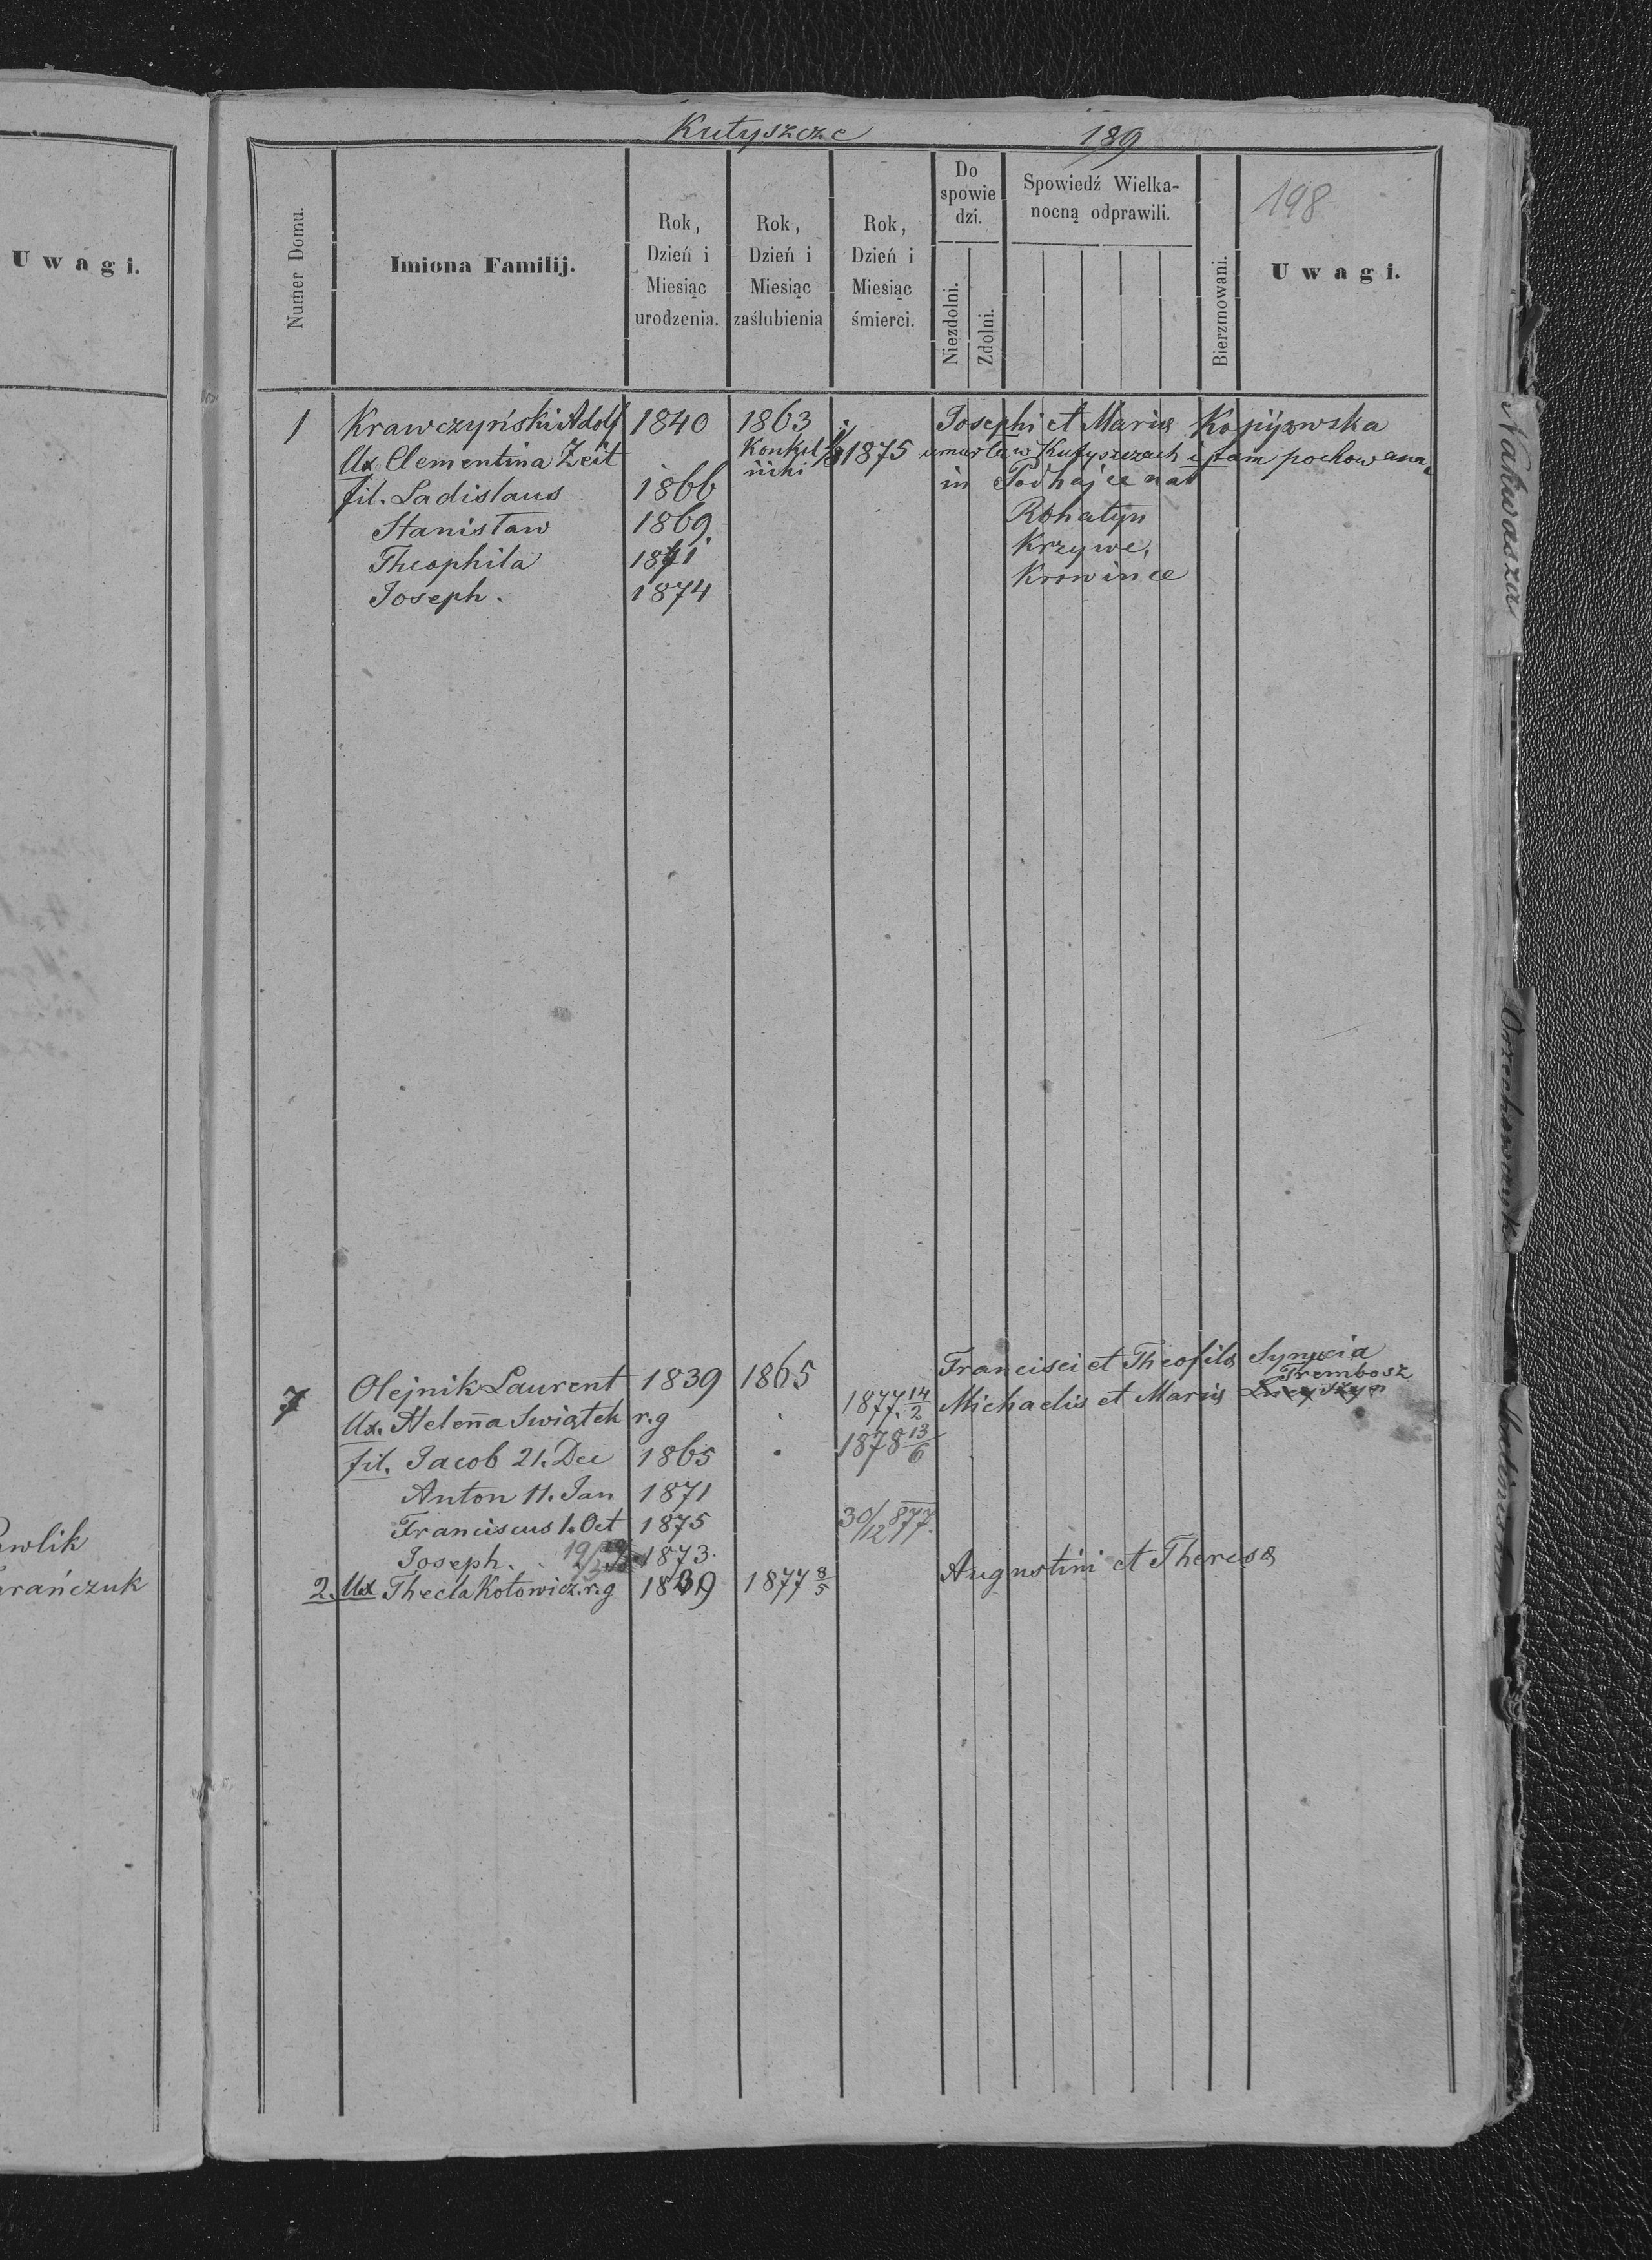 Uwagi.
wlik
rańczuk
Kutyszcze 189
Numer Domu.
Imiona Familij.
Rok, Dzień i Miesiąc urodzenia.
Rok, Dzień i Miesiąc zaślubienia
Rok, Dzień i Miesiąc śmierci.
Do spowie dzi.
Niezdolni.
Zdolni.
Spowiedź Wielka-
nocną odprawili.
Bierzmowani.
198
Uwagi.
1 Krawczyński Adolf 1840 1863 Josephi et Maria Kopijowska
Ux Clementina Zeit Konkel niki 1875 umarła w Kutyszczach i tam pochowana
fil. Ladislaus 1866 in Podhajce nat
Stanisław 1869 Rohatyn
Theophila 1871 Krzywe,
Joseph. 1874 Krowince
7 Olejnik Laurent 1839 1865 Francisci et Theofila Synycia
Ux. Helena Swiątek r.g 1877. 14/2 Michaelis et Maria Trembosz
fil. Jacob 21. Dec 1865 1878 13/6
Anton 11. Jan 1871
Franciscus 1. Oct 1875 30/12 877.
Joseph. 19/3 1873.
2. Ux Thecla Kotowicz. r.g 1839 1877 8/5 Augustini et Theresa
Nałuwasza
Orzechowczyk